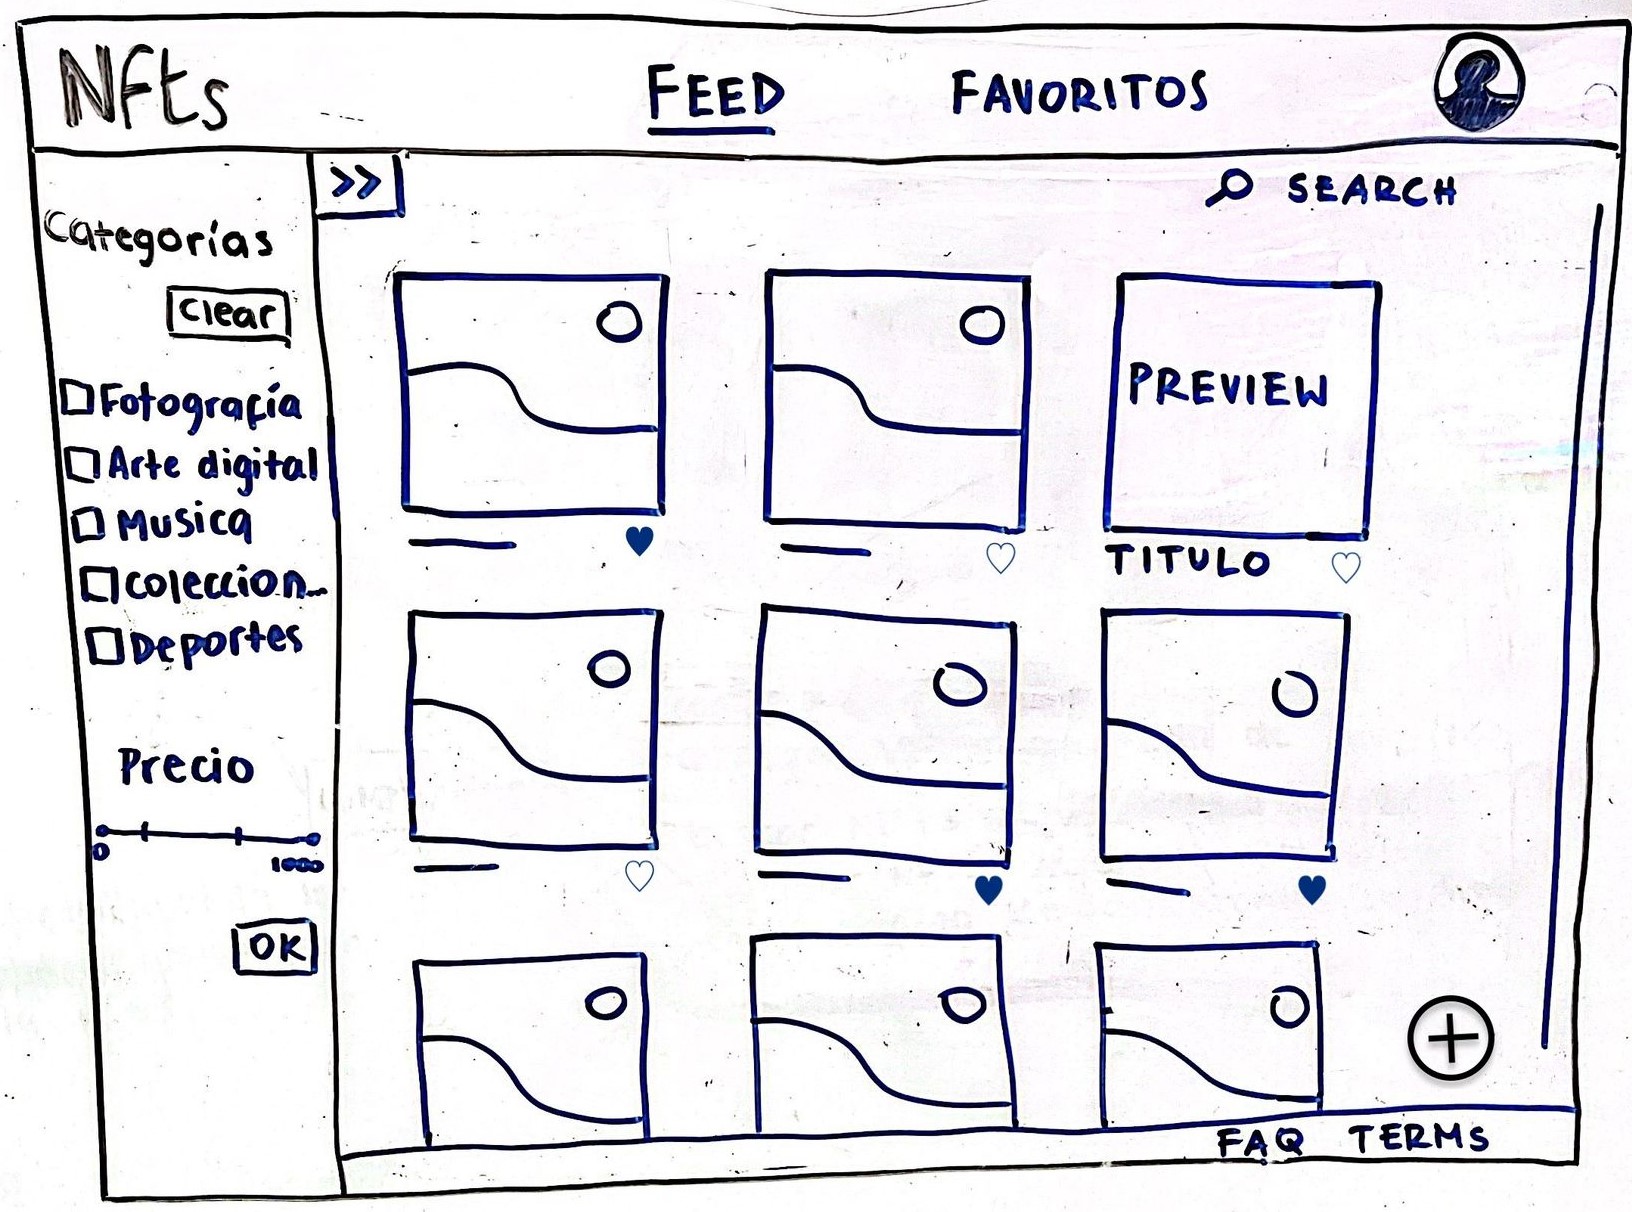 Nfts
FEED
FAVORITOS
>>
SEARCH
Categorías
Clear
Fotografía
Arte digital
Musica
coleccion...
Deportes
Precio
0
1000
OK
PREVIEW
TITULO
FAQ TERMS